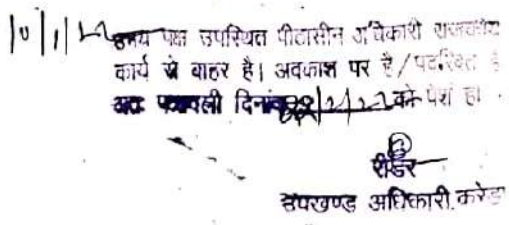 10/1/22 उभय पक्ष उपस्थित पीठासीन अधिकारी राजकीय
कार्य से बाहर है। अवकाश पर है/पदरिक्त है
अतः पत्रावली दिनांक /2/22 को पेश हो।
रीडर
उपखण्ड अधिकारी, करेड़ा